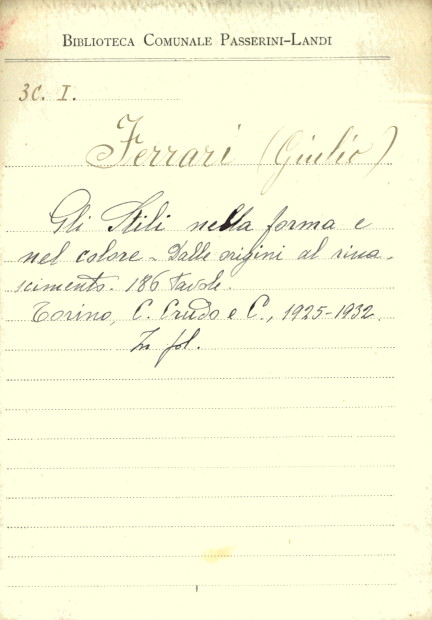 Biblioteca Comunale Passerini-Landi
3C. I.
Ferrari (Giulio)
Gli Stili nella forma e
nel colore - Dalle origini al rina-
scimento. 186 tavole.
Torino, C. Crudo e C., 1925-1932.
In fol.